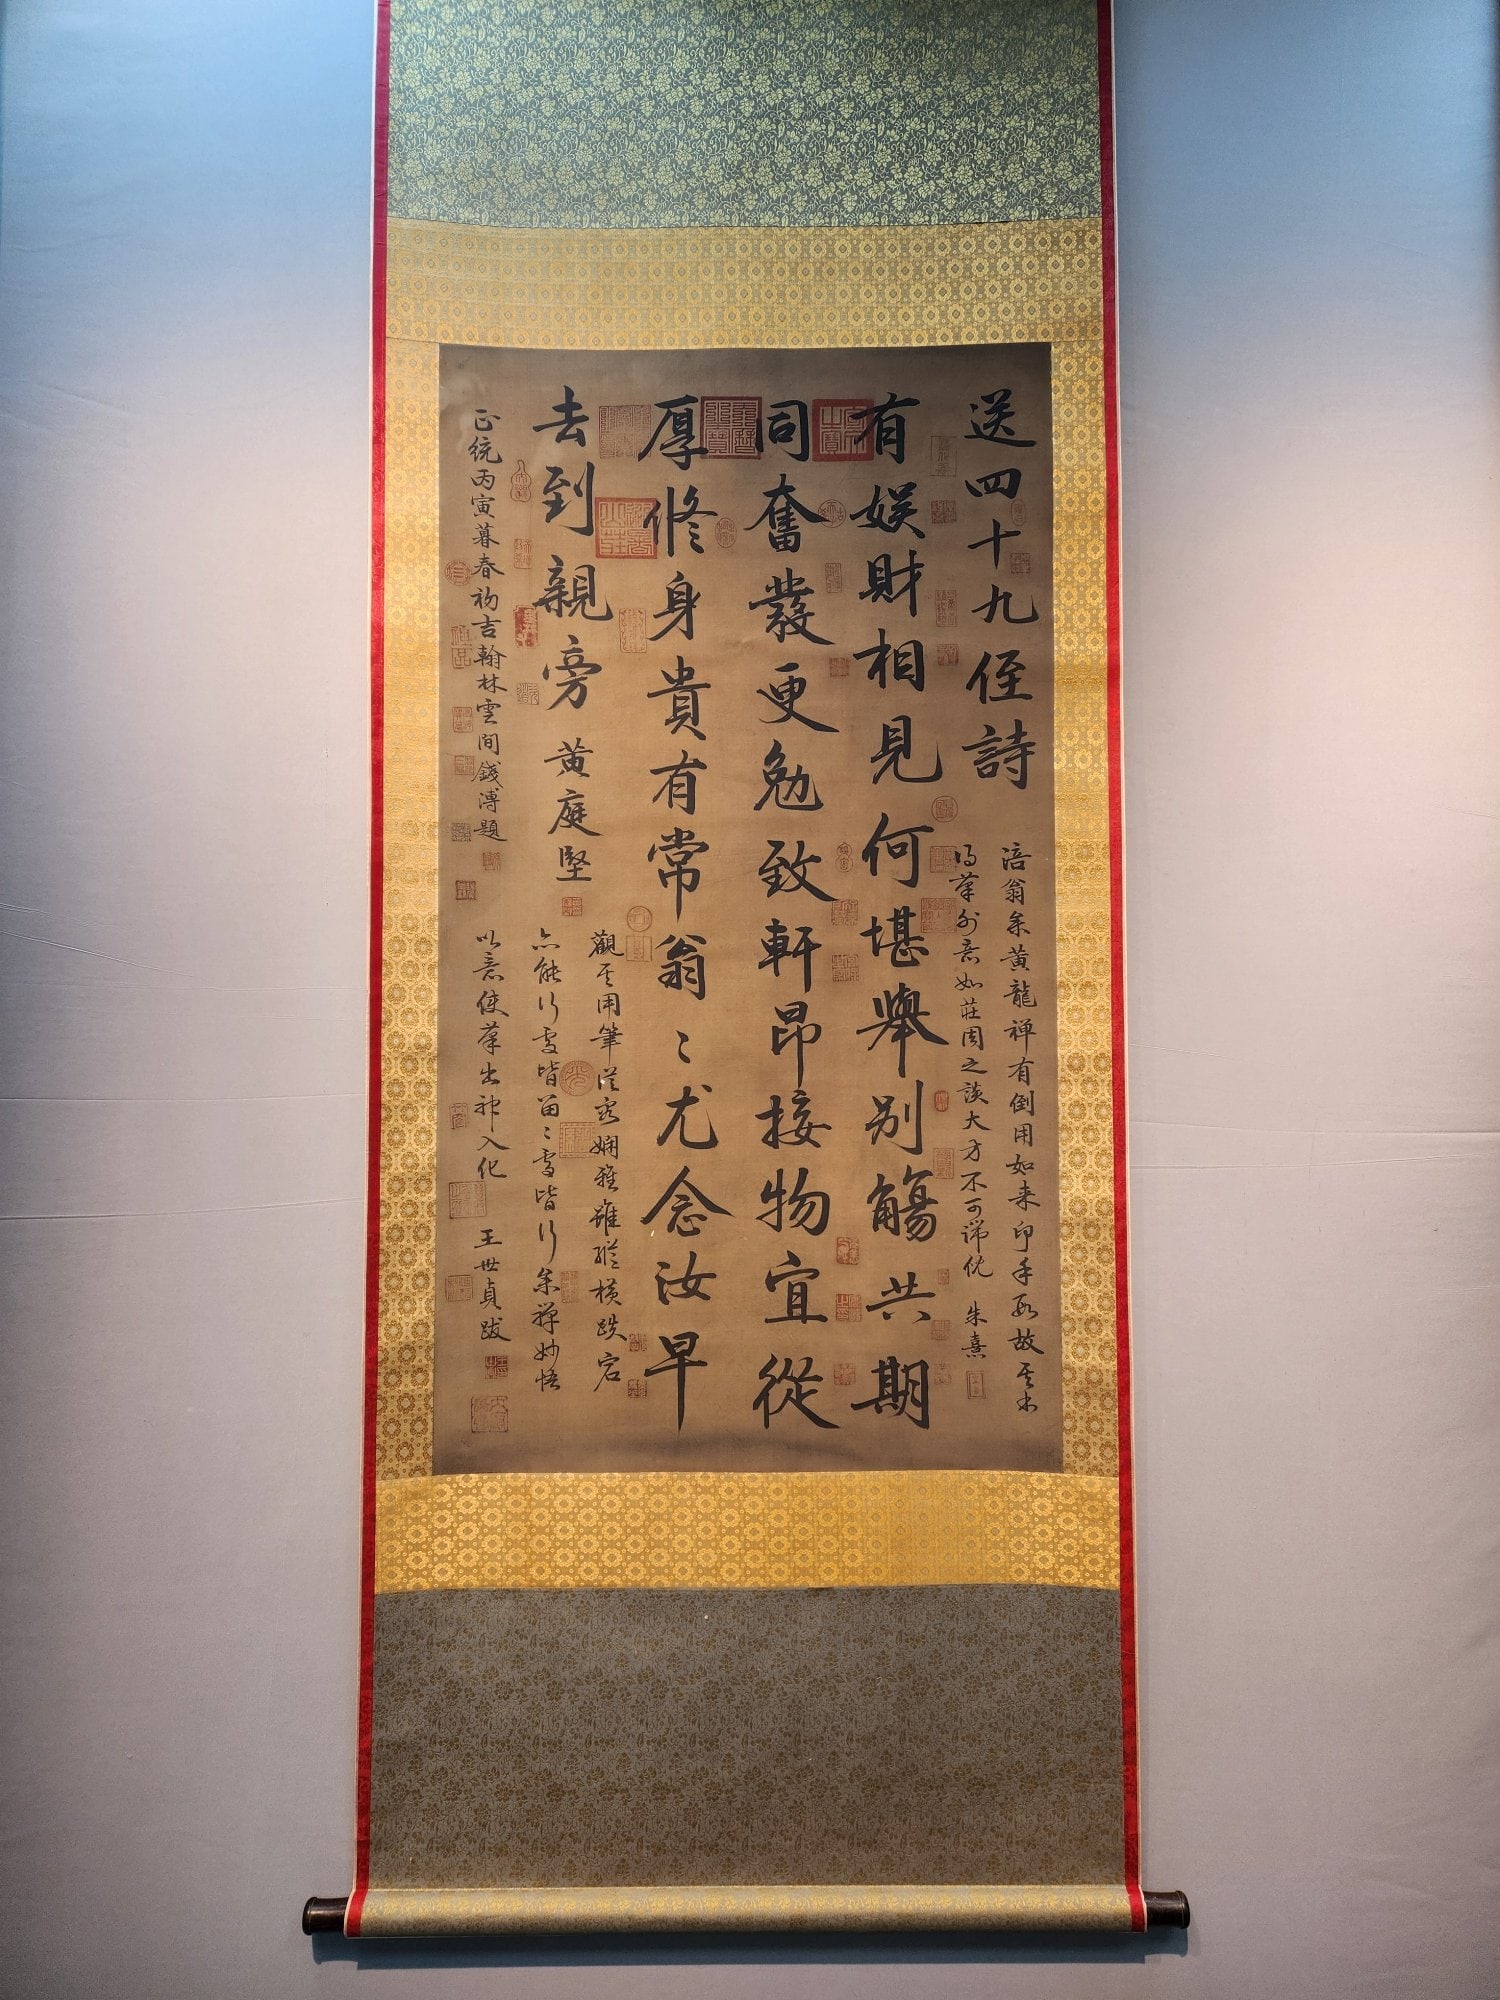 送四十九侄詩
涪翁參黃龍禪有倒用如来印手段故其書
得筆外意如莊周之談大方不可端倪 朱熹
有娱財相見何堪舉别觴共期
同奮發更勉致軒昂接物宜從
厚修身貴有常翁〻尤念汝早
去到親旁 黃庭堅
觀其用筆從容嫻雅雖縱橫跌宕
亦能行處皆留〻處皆行參禪妙悟
正統丙寅暮春初吉翰林雲間錢溥題
以意使筆出神入化 王世貞跋